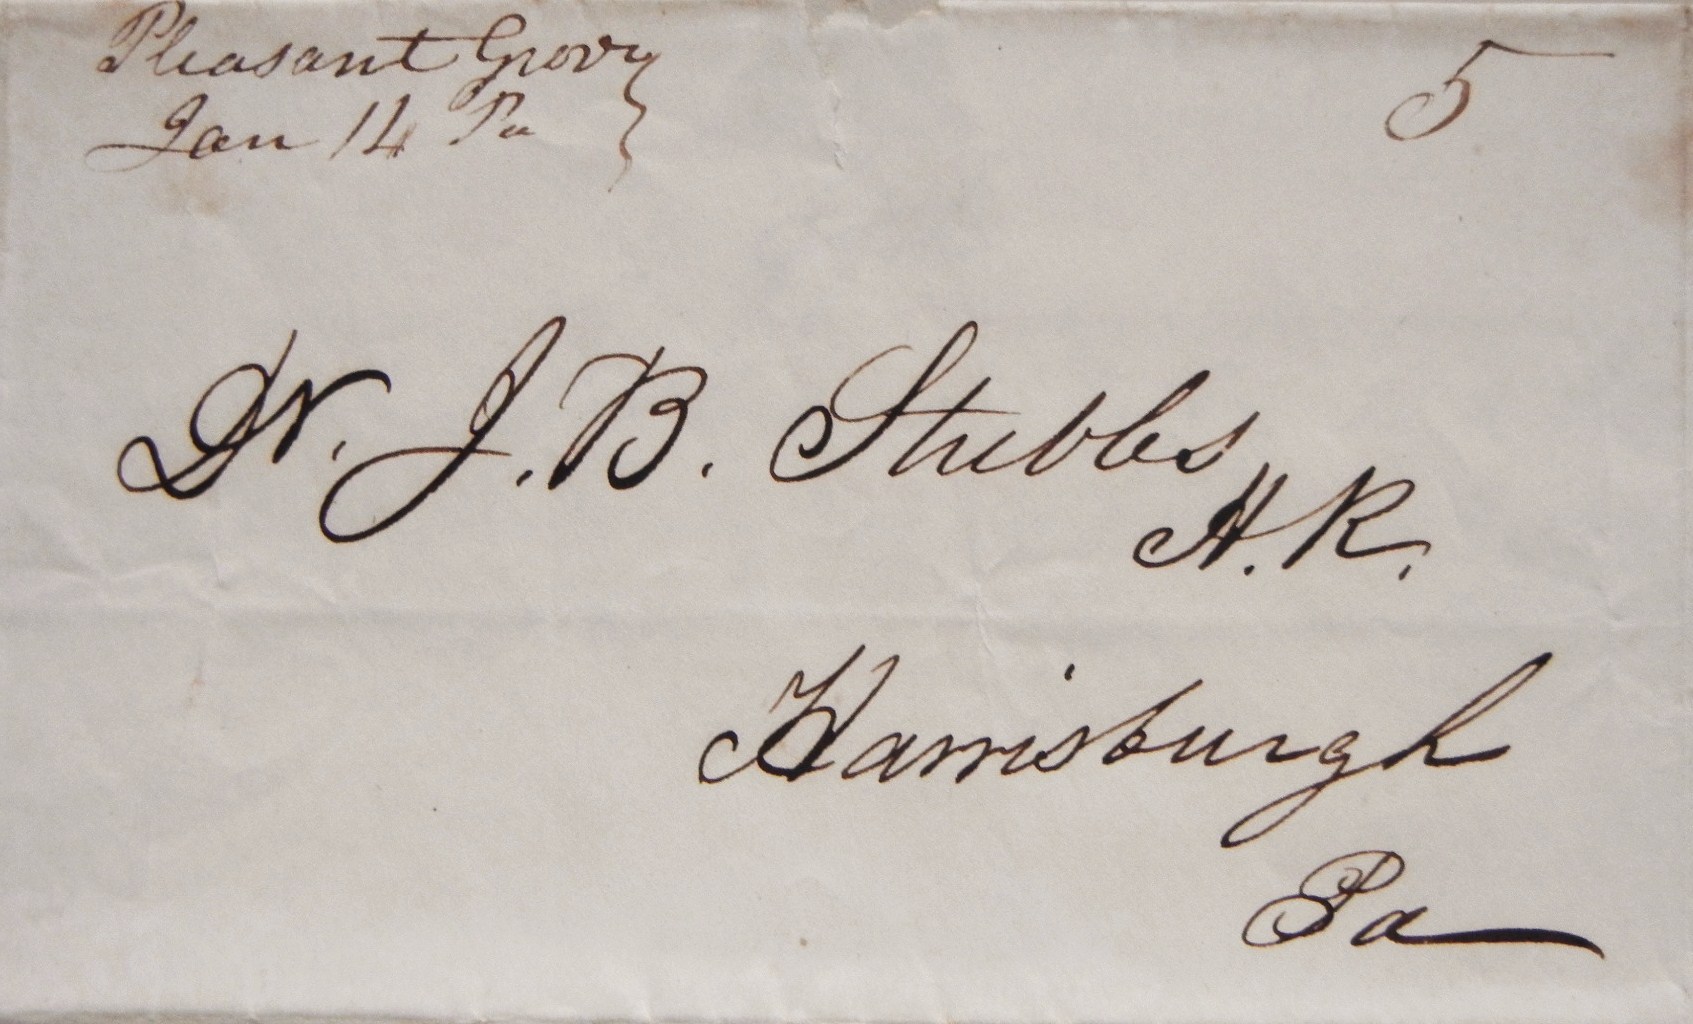 Pleasant Grove
Jan 14 Pa
5
Dr. J. B. Stubbs
H. R.
Harrisburgh
Pa